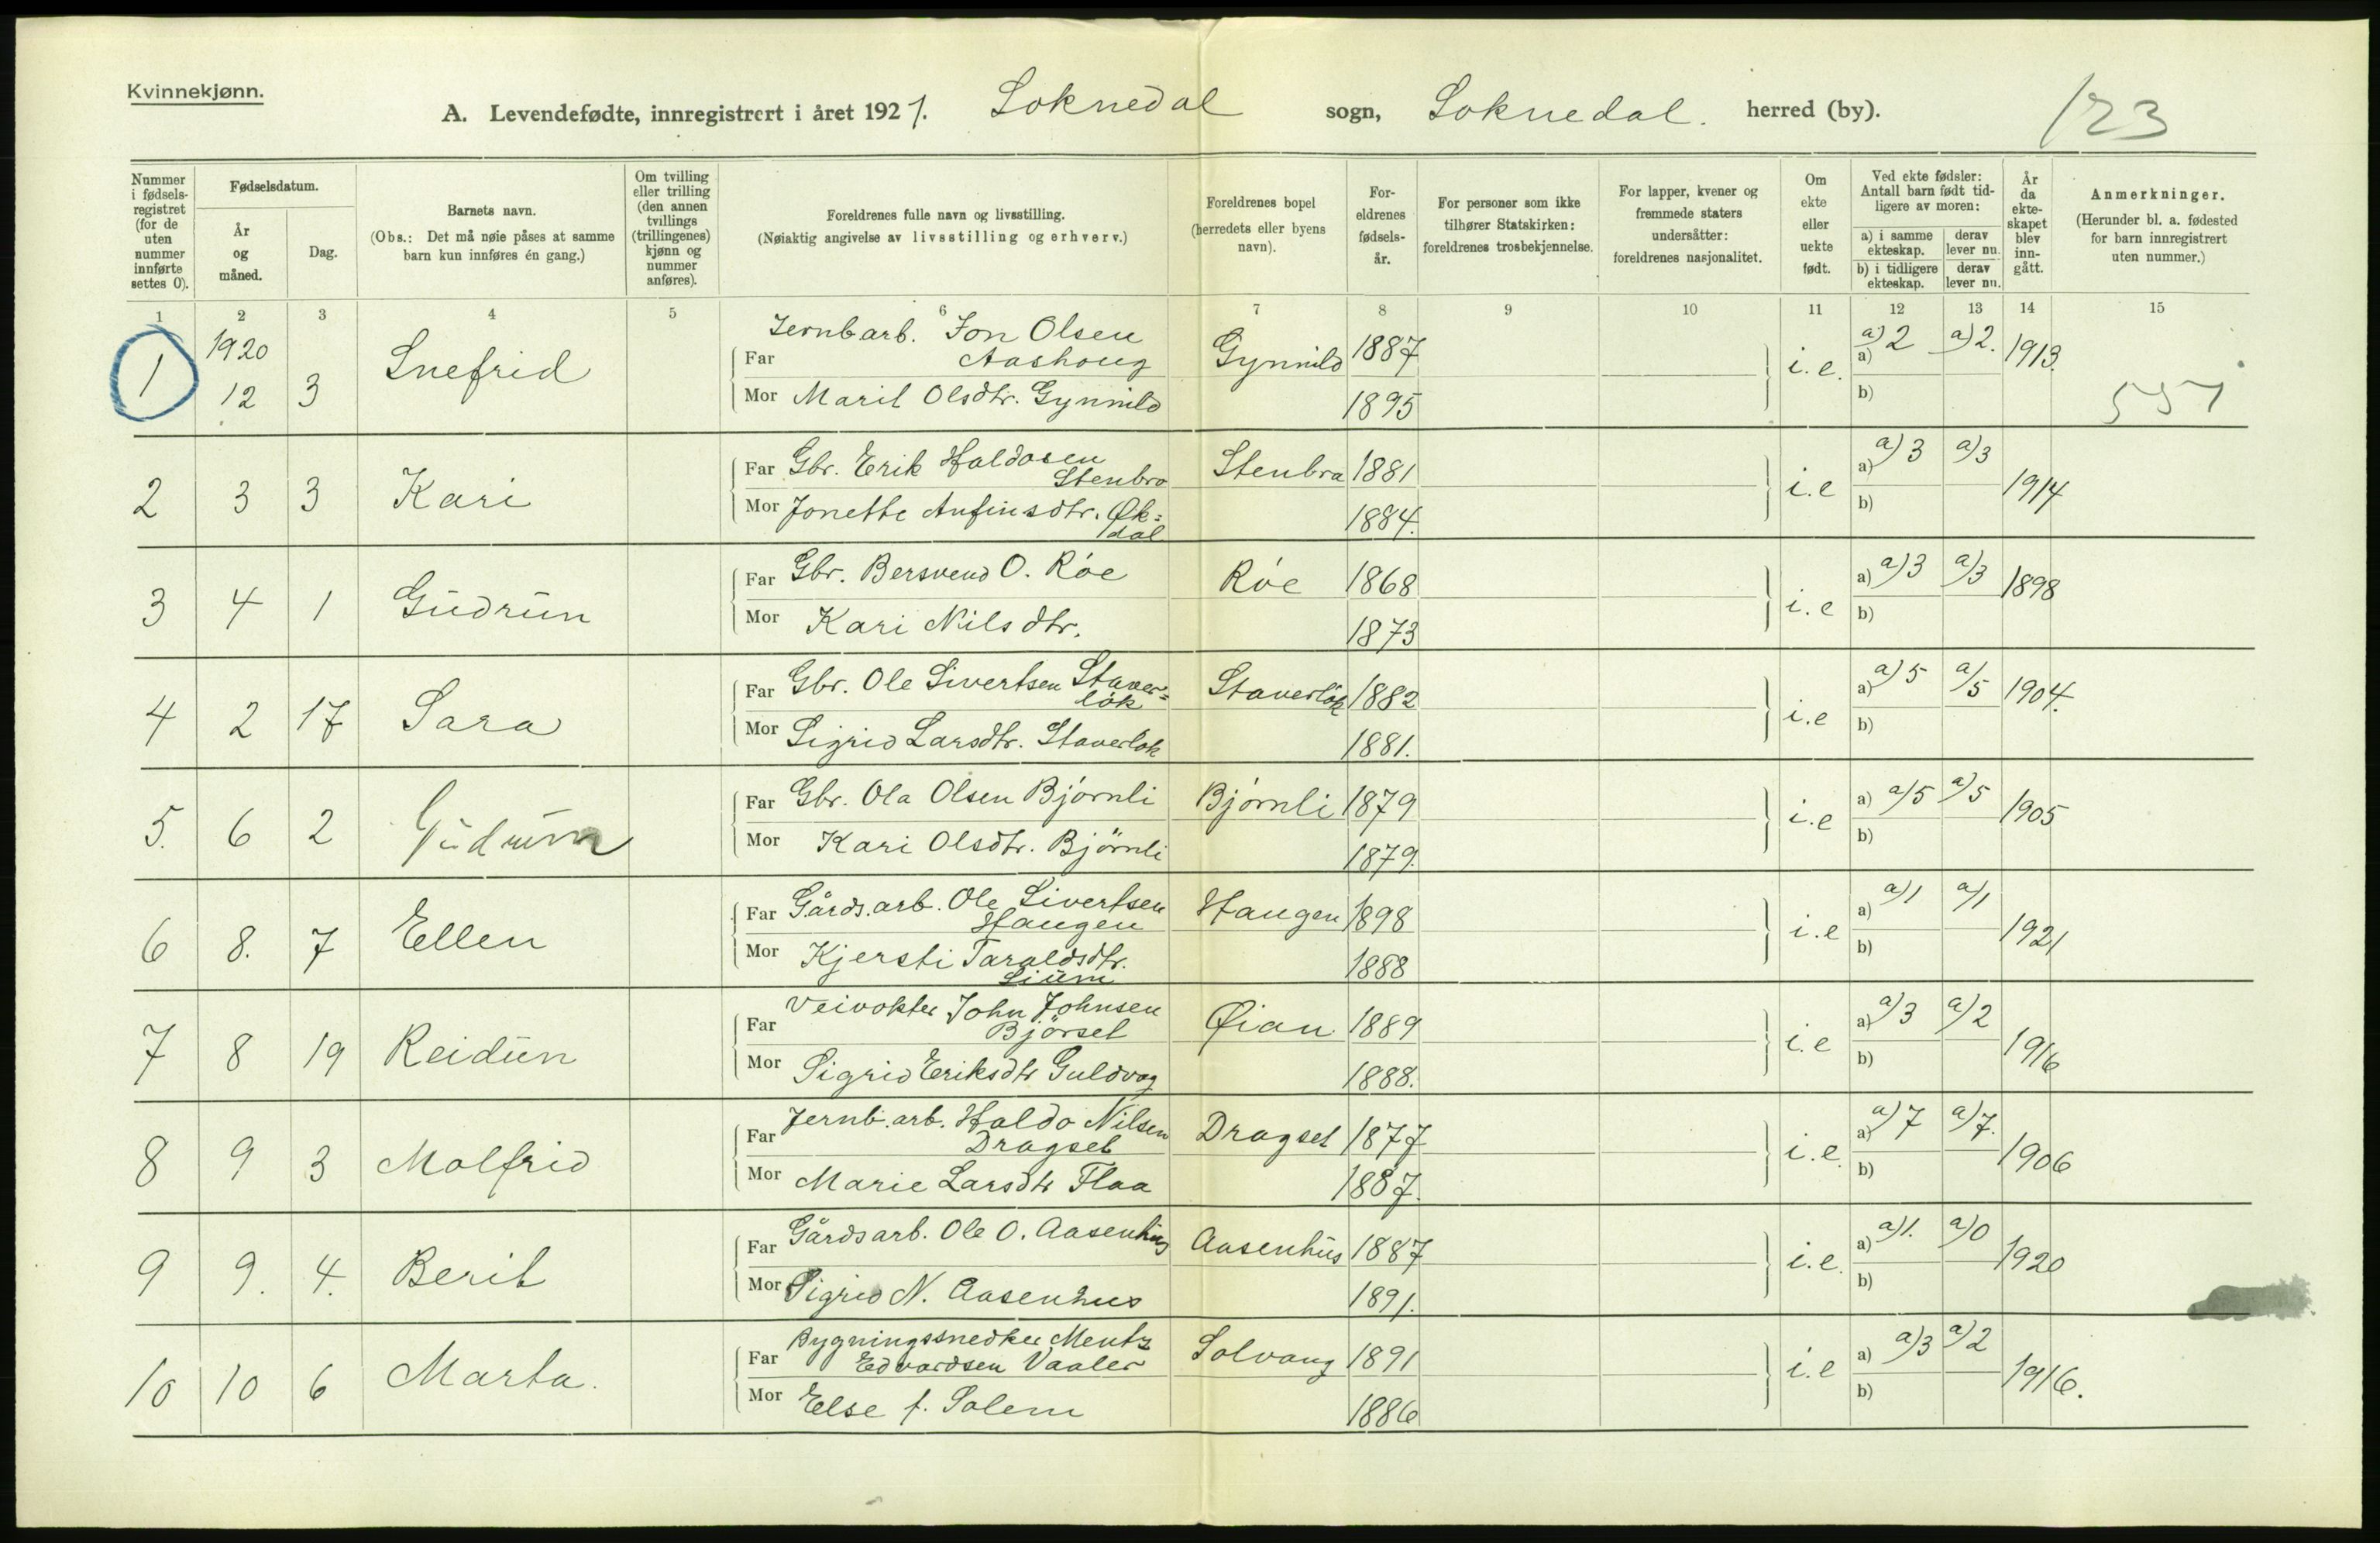 Kvinnekjønn.
A. Levendefødte, innregistrert i året 1921. Soknedal sogn, Soknedal. herred (by). 123
Nummer i fødsels-registret (for de uten nummer innførte settes 0).
Fødselsdatum.
År og måned.
Dag.
Barnets navn.
(Obs.: Det må nøie påses at samme barn kun innføres én gang.)
Om tvilling eller trilling (den annen tvillings (trillingenes) kjønn og nummer anføres).
Foreldrenes fulle navn og livsstilling.
(Nøiaktig angivelse av livsstilling og erhverv.)
Foreldrenes bopel (herredets eller byens navn).
For-eldrenes fødsels-år.
For personer som ikke tilhører Statskirken: foreldrenes trosbekjennelse.
For lapper, kvener og fremmede staters undersåtter: foreldrenes nasjonalitet.
Om ekte eller uekte født.
Ved ekte fødsler: Antall barn født tid-ligere av moren:
a) i samme ekteskap. derav lever nu.
b) i tidligere ekteskap. derav lever nu.
År da ekte-skapet blev inn-gått.
Anmerkninger.
(Herunder bl. a. fødested for barn innregistrert uten nummer.)
1 2 3 4 5 6 7 8 9 10 11 12 13 14 15
1 1920 12 3 Snefrid
Jernbarb. Jon Olsen
Far Aashoug Gynnild 1887 i.e. a) a) 2 a) 2. 1913.
Mor Marit Olsdtr. Gynnild 1895 b) 557
2 3 3 Kari
Far Gbr. Erik Haldosen Stenbro Stenbra 1881 i.e a) a) 3 a) 3 1914
Mor Jonette Anfinsdtr. Øk=dal 1884. b)
3 4 1 Gudrun
Far Gbr. Bersvend O. Róe Róe 1868 i.e a) a) 3 a) 3 1898
Mor Kari Nilsdtr. 1873 b)
4 2 17 Sara
Far Gbr. Ole Sivertsen Staver=lók Staverlók 1882 i.e a) a) 5 a) 5 1904.
Mor Sigrid Larsdtr. Staverlok 1881. b)
5. 6 2 Gudrun
Far Gbr. Ola Olsen Bjórnli Bjórnli 1879 i.e a) a) 5 a) 5 1905
Mor Kari Olsdtr. Björnli 1879. b)
6 8. 7 Ellen
Far Gårds.arb. Ole Sivertsen Haugen Haugen 1898 i.e a) a) 1 a) 1 1921
Mor Kjersti Taraldsdtr. Lium 1888 b)
7 8 19 Reidun
Far Veivokter John Johnsen Björset Øian 1889 i.e a) a) 3 a) 2 1916
Mor Sigrid Eriksdtr Guldvog 1888. b)
8 9 3 Malfrid
Far Jernb.arb. Haldo Nilsen Dragset Dragset 1877 i.e. a) a) 7 a) 7. 1906
Mor Marie Larsdtr Flaa 1887. b)
9 9. 4. Berit
Far Gårdsarb. Ole O. Aasenhus Aasenhus 1887 i.e. a) a) 1. a) 0 1920
Mor Sigrid N. Aasenhus 1891. b)
10 10 6 Marta.
Far Bygningssnedker Mentz Edvardsen Vaaler Solvang 1891 i.e a) a) 3 a) 2 1916.
Mor Else f. Solem 1886 b)